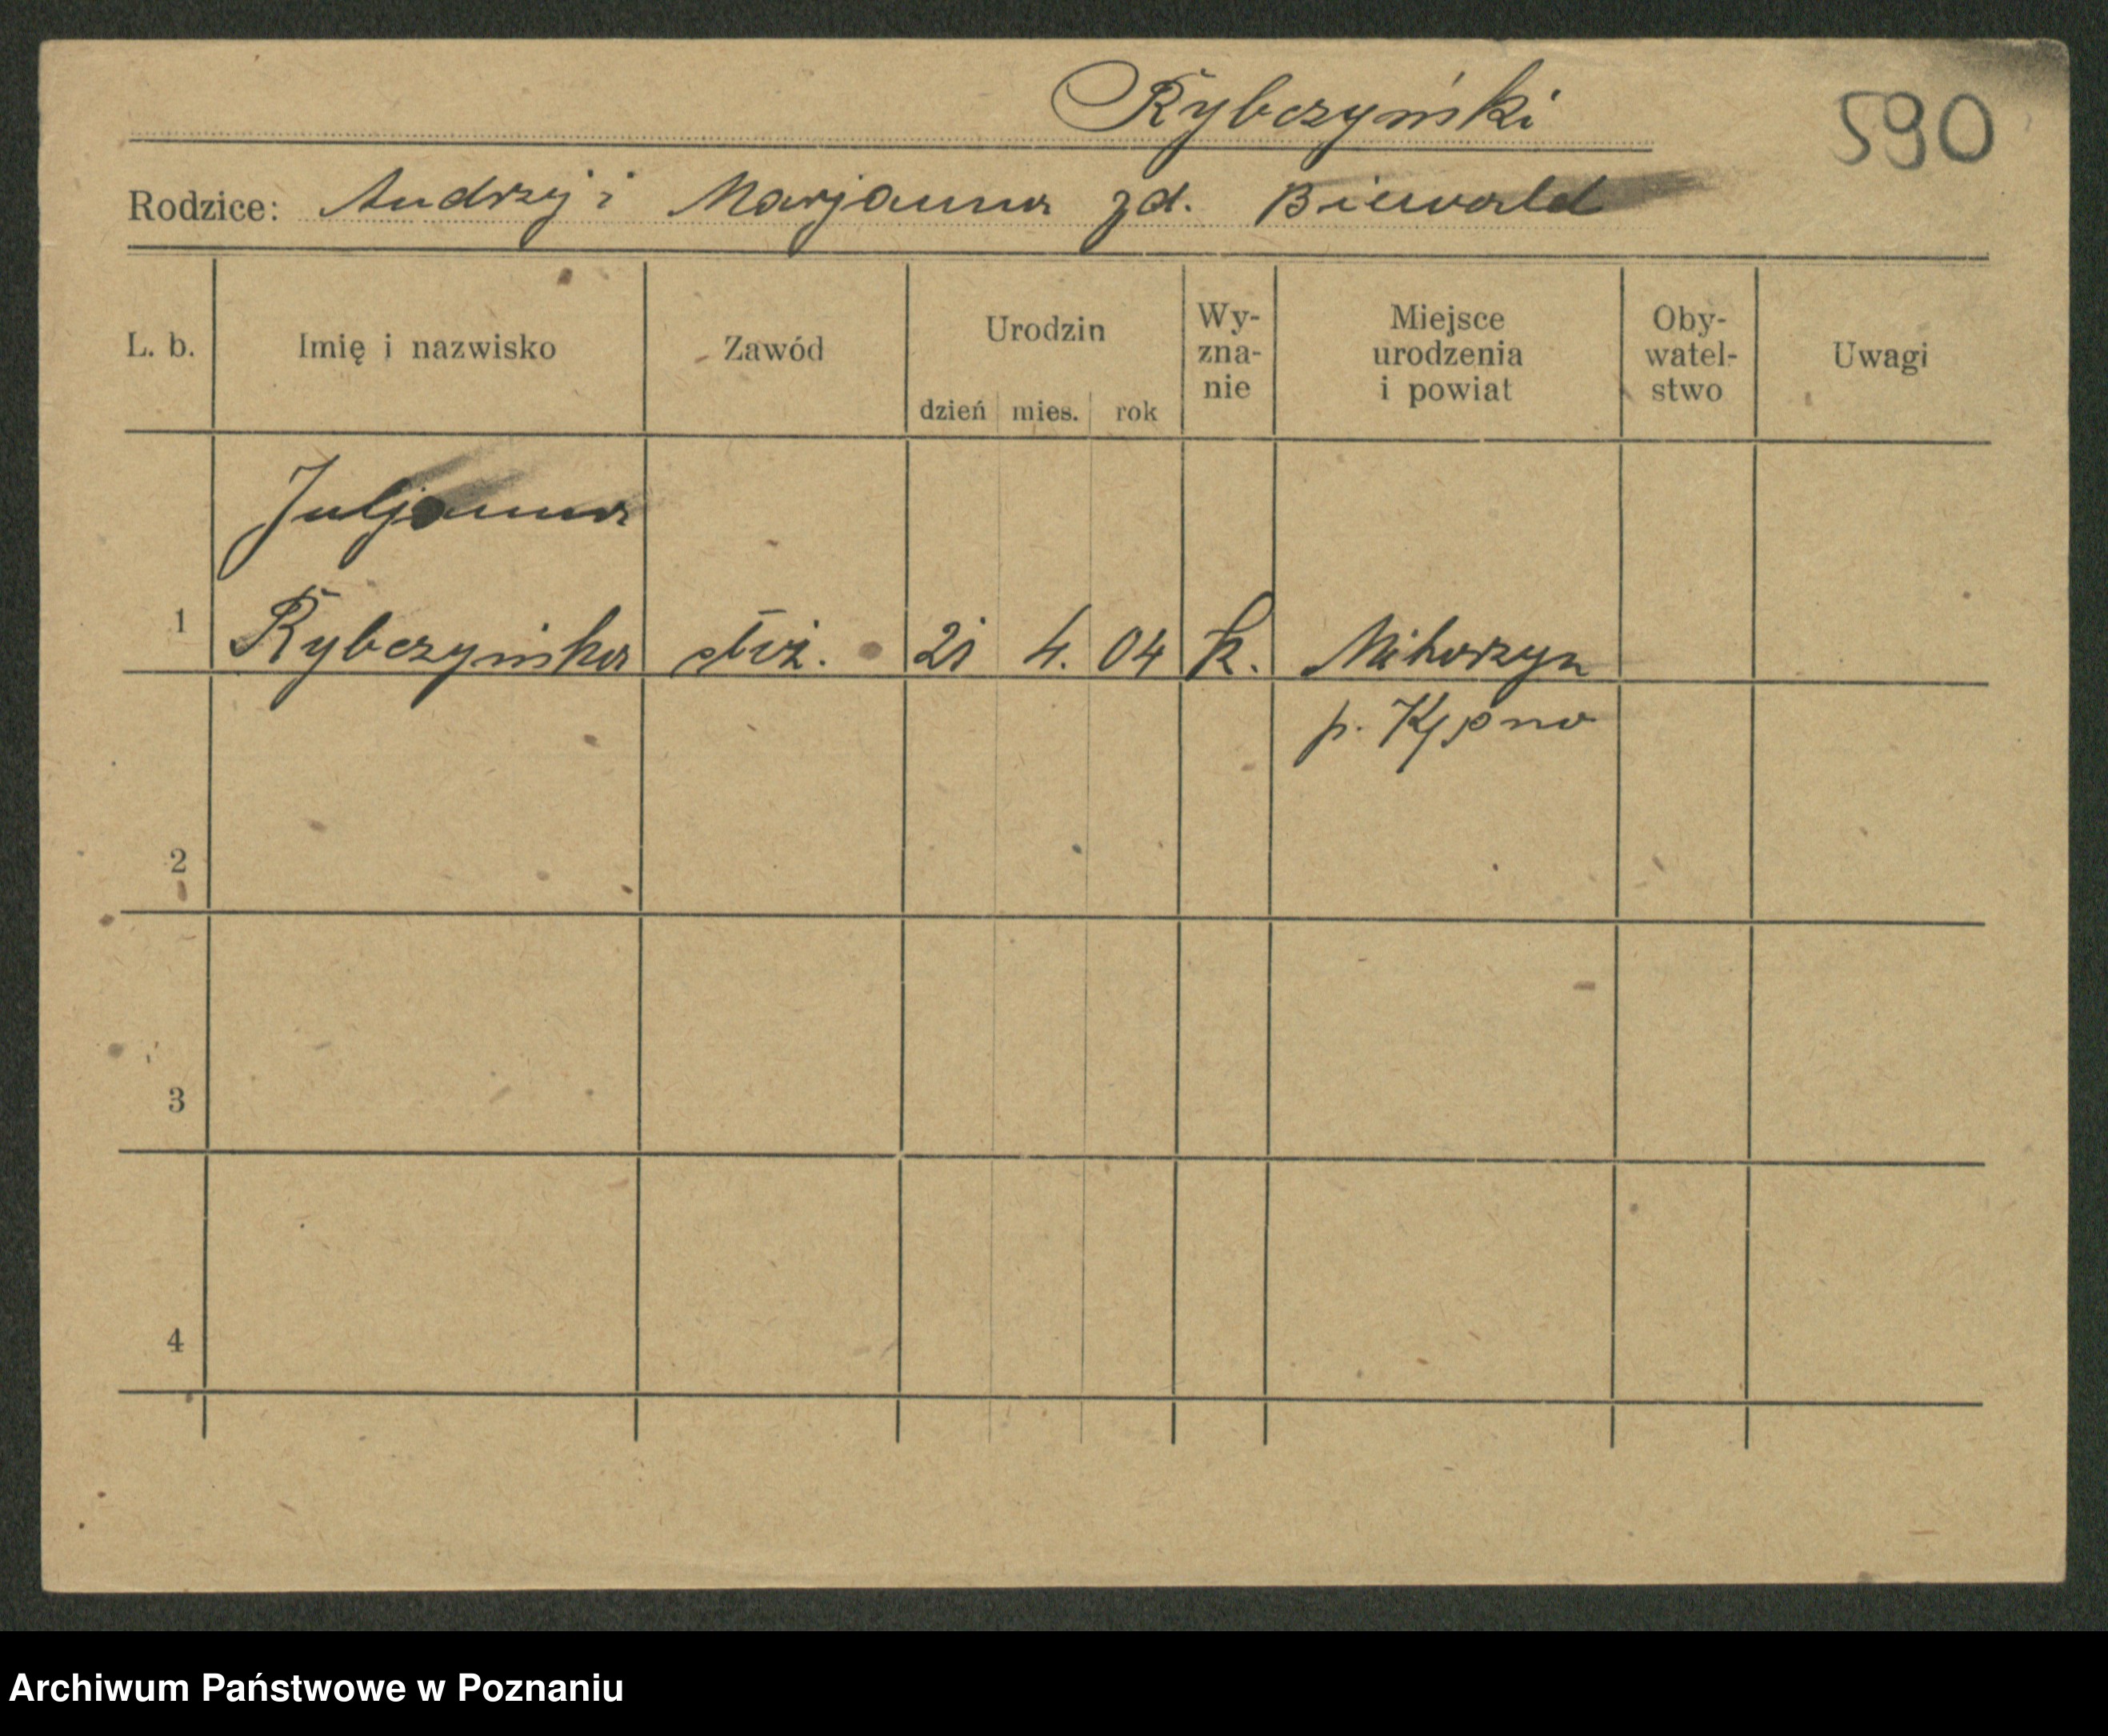 Rybczyński
590
Rodzice: Andrzej i Marjanna zd. Biewald
L. b.
Imię i nazwisko
Zawód
Urodzin
dzień mies. rok
Wy-
zna-
nie
Miejsce
urodzenia
i powiat
Oby-
watel-
stwo
Uwagi
Juljanna
1 Rybczyńska służ. 21 4. 04 k. Mikorzyn
p. Kępno
2
3
4
Archiwum Państwowe w Poznaniu